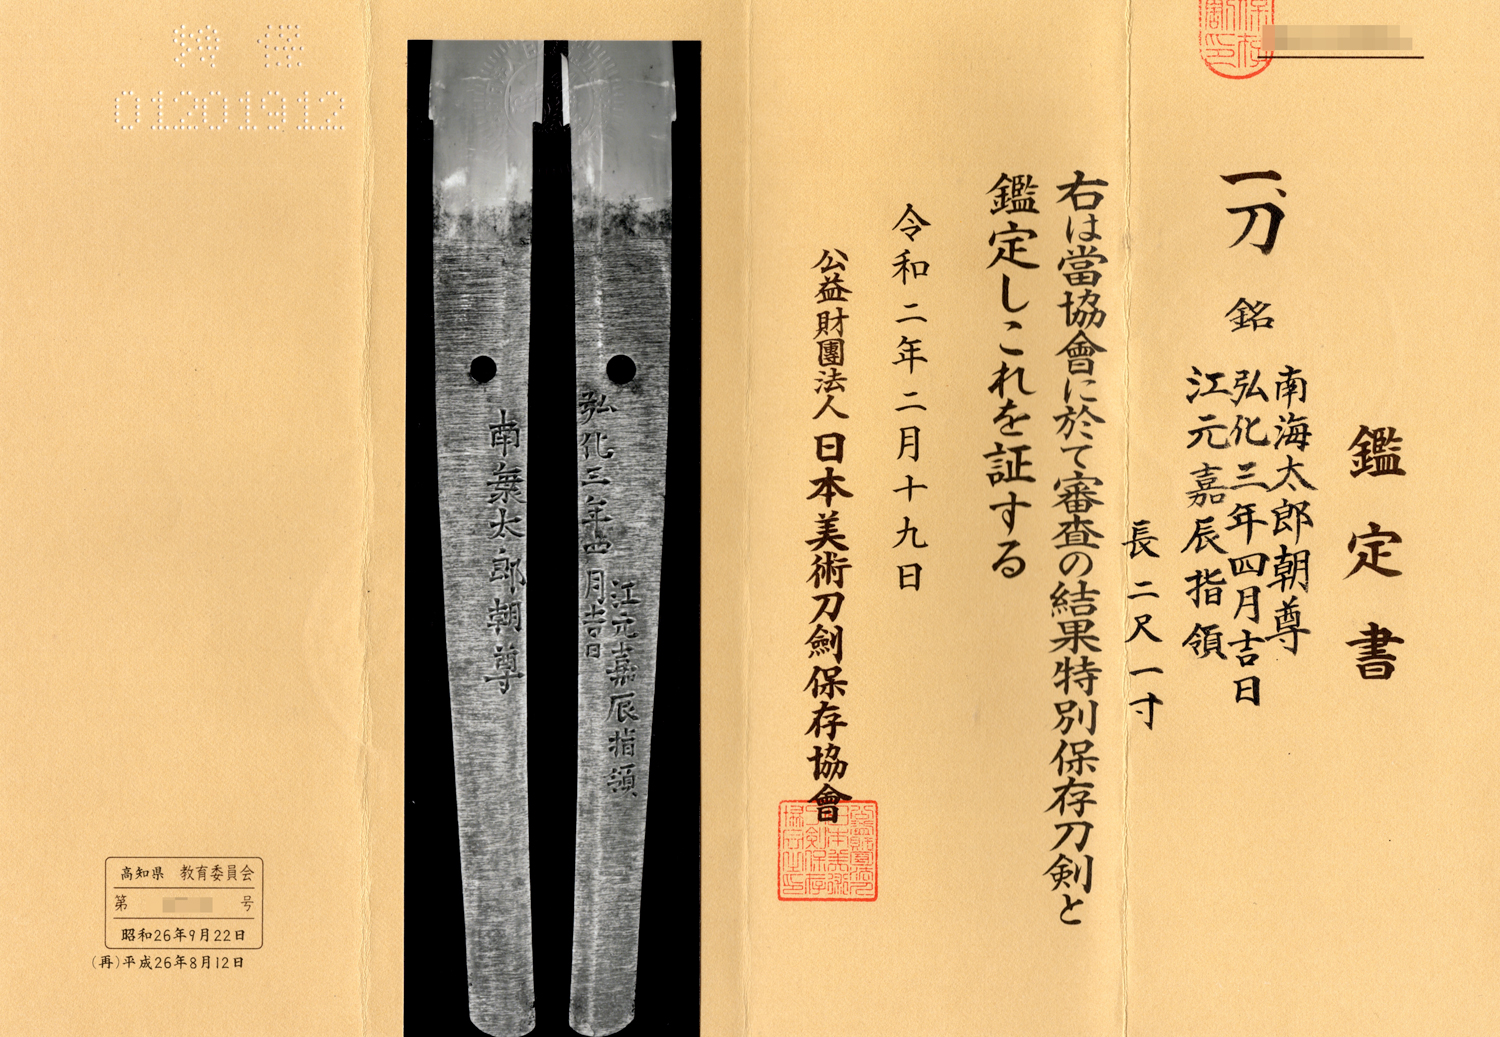 鑑定書
一、刀 銘
南海太郎朝尊
弘化三年四月吉日
江元嘉辰指領
長二尺一寸
右は當協會に於て審査の結果特別保存刀剣と
鑑定しこれを証する
令和二年二月十九日
公益財團法人日本美術刀劍保存協會
弘化三年四月吉日
江元嘉辰指領
南海太郎朝尊
特保
01201912
高知県 教育委員会
第 号
昭和26年9月22日
(再)平成26年8月12日